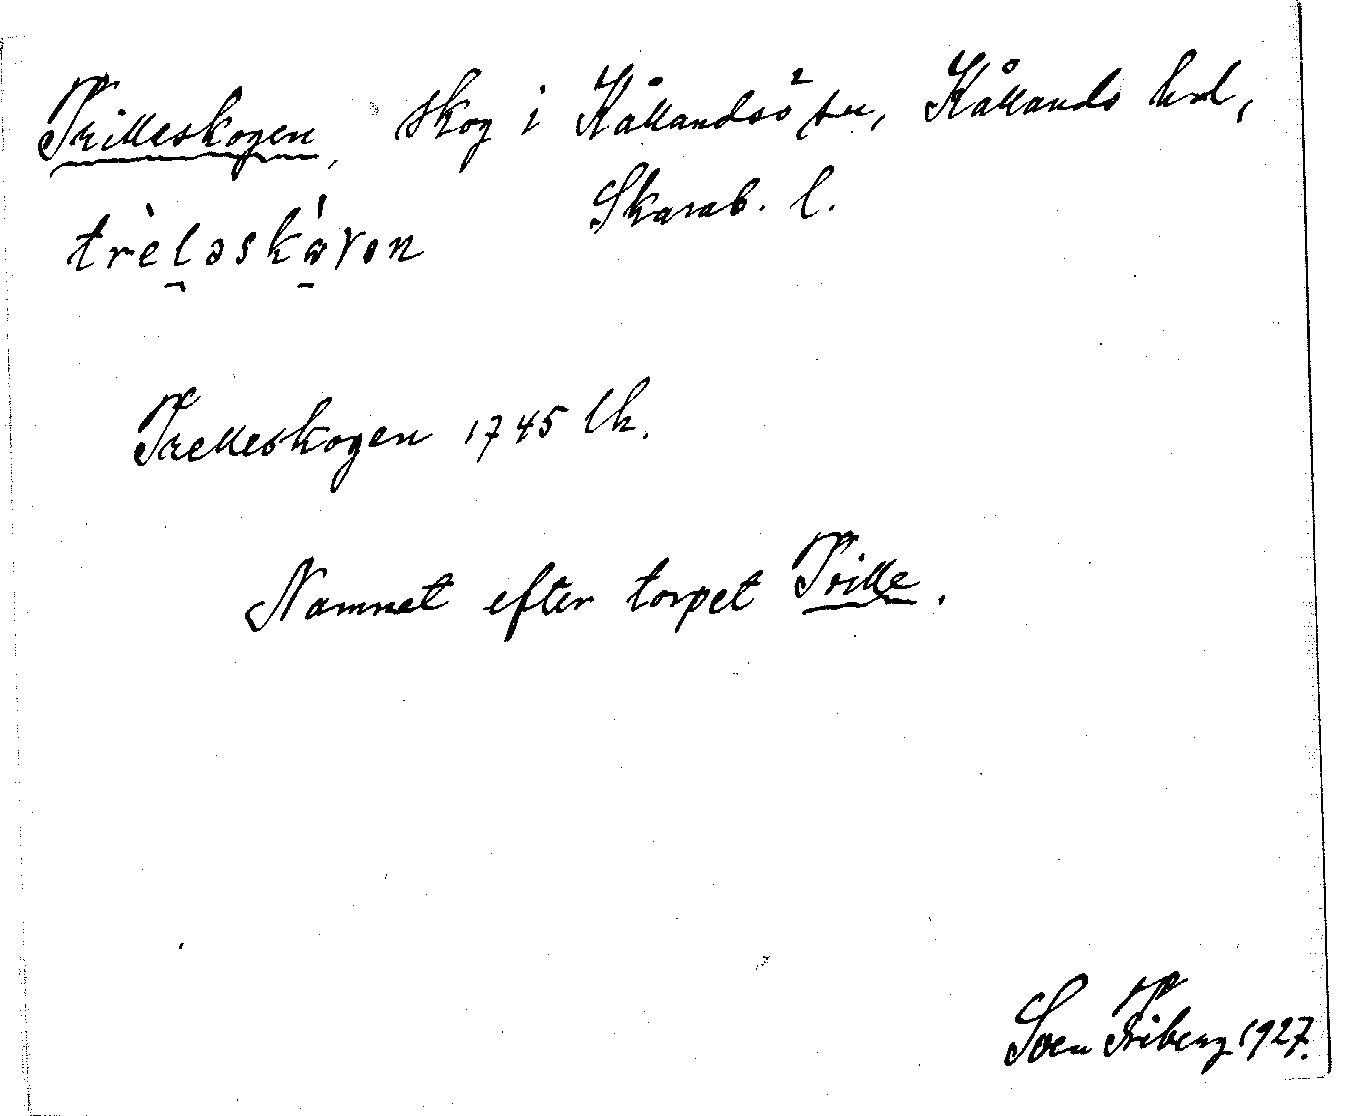 Trilleskogen, skog i Kållandsö sn, Kållands hd,
Skarab. l.
trèləskáγən
Trelleskogen 1745 lh.
Namnet efter torpet Trille.
Sven Friberg 1927.